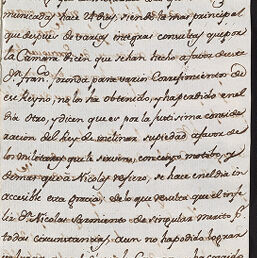 municada, hace 24 dias, siendo la mas principal
que despues de varias integras consultas que por
la Camara dicen que se han hecho a favor de este
Dn. Fran.co ronda para varios Corregimientos de
ese Reyno, no los ha obtenido, y ha perdido en el
dia otro, y dicen que es por la justisima conside-
racion del Rey de inclinar su piedad a favor de
los militares que le sirven, con cuyo motibo, y
demas que a Nicolas refiero, se hace en el dia in-
accesible esta gracia, de lo que resulta que el infe-
liz Dn. Nicolas Sarmiento de singular merito pr.
todas circunstancias, aun no ha podido lograr